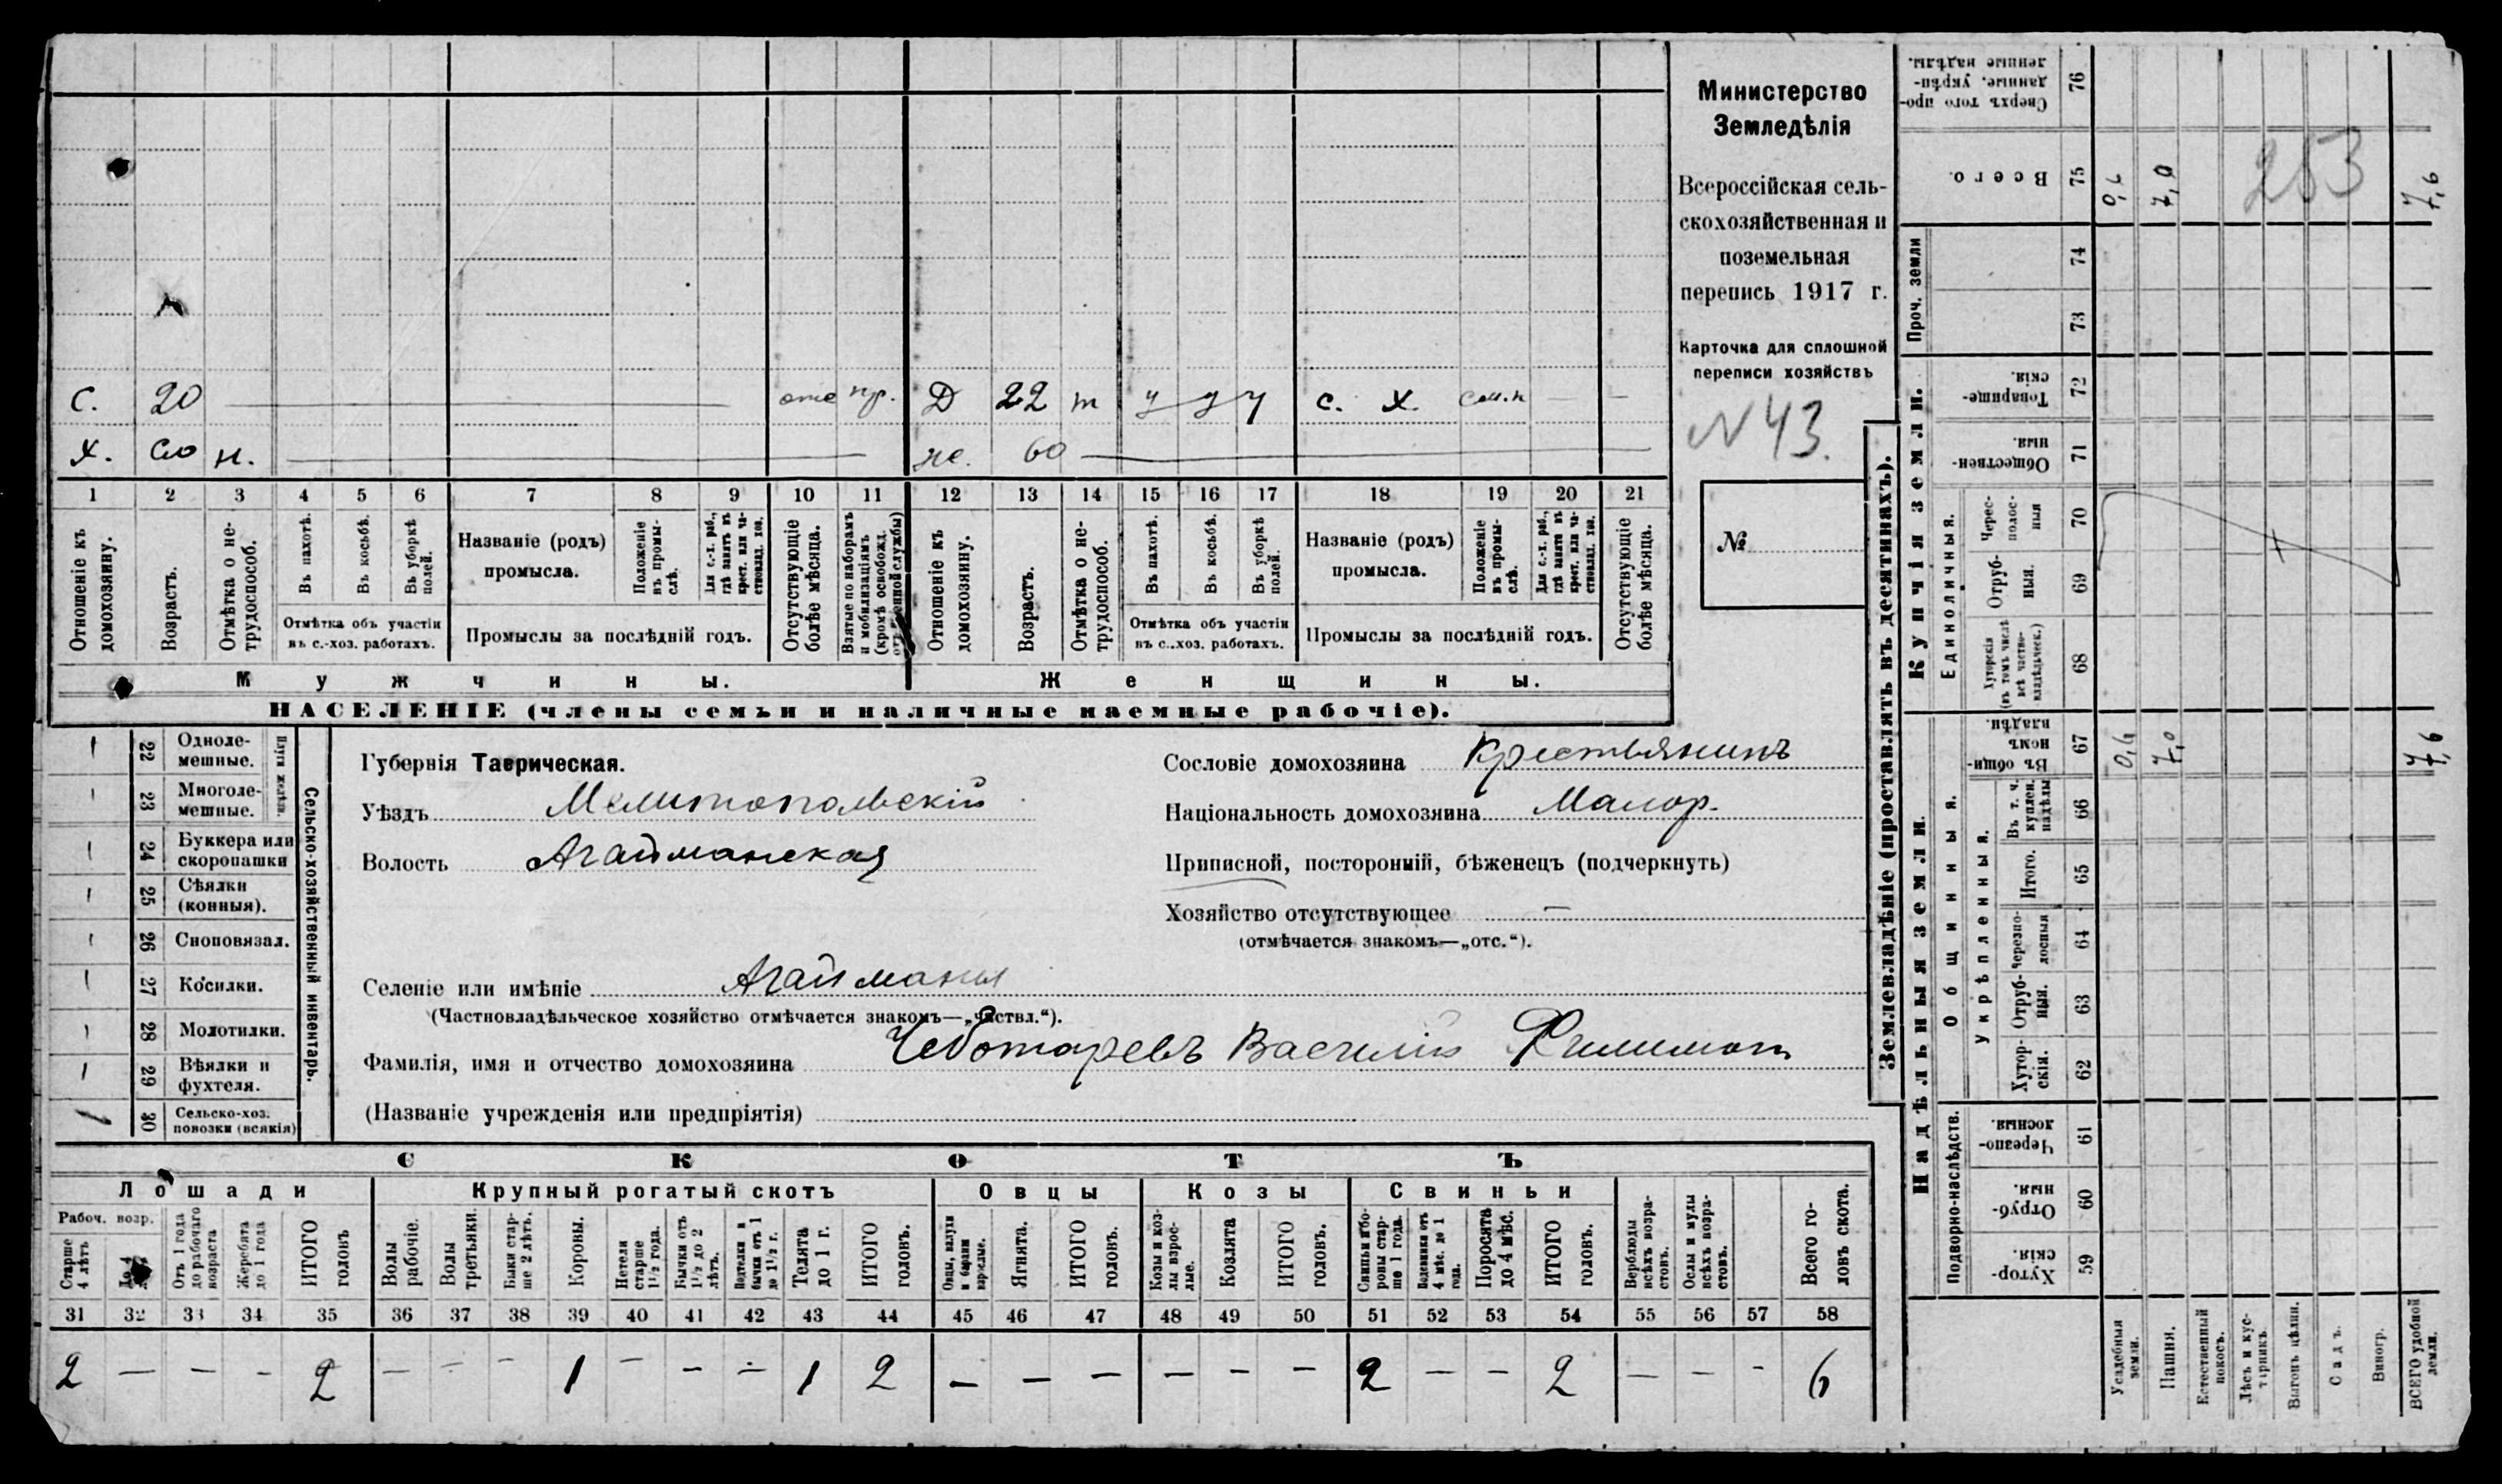 С. 20 отс пр. Д 22 т у у у с. х. сам.х — —
Х. 60 н. ж. 60
1 2 3 4 5 6 7 8 9 10 11 12 13 14 15 16 17 18 19 20 21
Отношеніе къ домохозяину.
Возрастъ.
Отмѣтка о не-
трудоспособ.
Въ пахотѣ.
Въ косьбѣ.
Въ уборкѣ полей.
Отмѣтка объ участіи
въ с.-хоз. работахъ.
Названіе (родъ)
промысла.
Положеніе въ промы-
слѣ.
Для с.-х. раб., гдѣ занятъ въ крест. или ча-
стновлад. хоз.
Промыслы за послѣдній годъ.
Отсутствующіе болѣе мѣсяца.
Взятые по наборамъ и мобилизаціямъ (кромѣ освобожд. отъ военной службы)
Отношеніе къ домохозяину.
Возрастъ.
Отмѣтка о не-
трудоспособ.
Въ пахотѣ.
Въ косьбѣ.
Въ уборкѣ полей.
Отмѣтка объ участіи
въ с.-хоз. работахъ.
Названіе (родъ)
промысла.
Положеніе въ промы-
слѣ.
Для с.-х. раб., гдѣ занята въ крест. или ча-
стновлад. хоз.
Промыслы за послѣдній годъ.
Отсутствующіе болѣе мѣсяца.
Мужчины.
Женщины.
НАСЕЛЕНІЕ (члены семьи и наличные наемные рабочіе).
Министерство
Земледѣлія
Всероссійская сель-
скохозяйственная и
поземельная
перепись 1917 г.
Карточка для сплошной
переписи хозяйствъ
N 43.
№
22 Одноле-
мешные.
23 Многоле-
мешные.
Плуги желѣзн.
24 Буккера или
скоропашки
25 Сѣялки
(конныя).
26 Сноповязал.
27 Косилки.
28 Молотилки.
29 Вѣялки и
фухтеля.
30 Сельско-хоз.
повозки (всякія)
1
Сельско-хозяйственный инвентарь.
Губернія Таврическая.
Уѣздъ Мелитопольскій
Волость Агайманская
Селеніе или имѣніе Агайманы
(Частновладѣльческое хозяйство отмѣчается знакомъ—„частвл.“).
Фамилія, имя и отчество домохозяина Чеботаревъ Василій Филимон
(Названіе учрежденія или предпріятія)
Сословіе домохозяина Крестьянинъ
Національность домохозяина Малор.
Приписной, посторонній, бѣженецъ (подчеркнуть)
Хозяйство отсутствующее —
(отмѣчается знакомъ—„отс.“).
СКОТЪ
Лошади
Крупный рогатый скотъ
Овцы
Козы
Свиньи
Рабоч. возр.
Старше 4 лѣтъ
До 4
Отъ 1 года до рабочаго возраста
Жеребята до 1 года
ИТОГО головъ
Волы рабочіе.
Волы третьяки.
Быки стар-
ше 2 лѣтъ.
Коровы.
Нетели старше 1½ года.
Бычки отъ 1½ до 2 лѣтъ.
Подтелки и бычки отъ 1 до 1½ г.
Телята до 1 г.
ИТОГО головъ.
Овцы, валухи и бараны взрослые.
Ягнята.
ИТОГО головъ.
Козы и коз-
лы взрос-
лые.
Козлята
ИТОГО головъ.
Свиньи и бо-
ровы стар-
ше 1 года.
Подсвинки отъ 4 мѣс. до 1 года.
Поросята до 4 мѣс.
ИТОГО головъ.
Верблюды всѣхъ возра-
стовъ.
Ослы и мулы всѣхъ возра-
стовъ.
Всего го-
ловъ скота.
31 32 33 34 35 36 37 38 39 40 41 42 43 44 45 46 47 48 49 50 51 52 53 54 55 56 57 58
2 — — — 2 — — — 1 — — — 1 2 — — — — — — 2 — — 2 — — — 6
Землевладѣніе (проставлять въ десятинахъ).
Надѣльныя земли.
Купчія земли.
Проч. земли
Подворно-наслѣдств.
Общинныя.
Укрѣпленныя.
Единоличныя.
Хутор-
скія. 59
Отруб-
ныя. 60
Черезпо-
лосныя. 61
Хутор-
скія. 62
Отруб-
ныя. 63
Черезпо-
лосныя 64
Итого. 65
Въ т. ч. куплен. надѣлы 66
Въ общин-
номъ владѣн. 67
Хуторскія (въ томъ числѣ всѣ частно-
владѣльческ.) 68
Отруб-
ныя. 69
Черес-
полос-
ныя 70
Обществен-
ныя. 71
Товарище-
скія. 72
73
74
Всего. 75
Сверхъ того про-
данные, укрѣп-
ленные надѣлы. 76
Усадебныя земли.
Пашня.
Естественный покосъ.
Лѣсъ и кус-
тарникъ.
Выгонъ цѣлин.
Садъ.
Виногр.
ВСЕГО удобной земли.
0,6 7,0 7,6
0,6 7,0 7,6
253